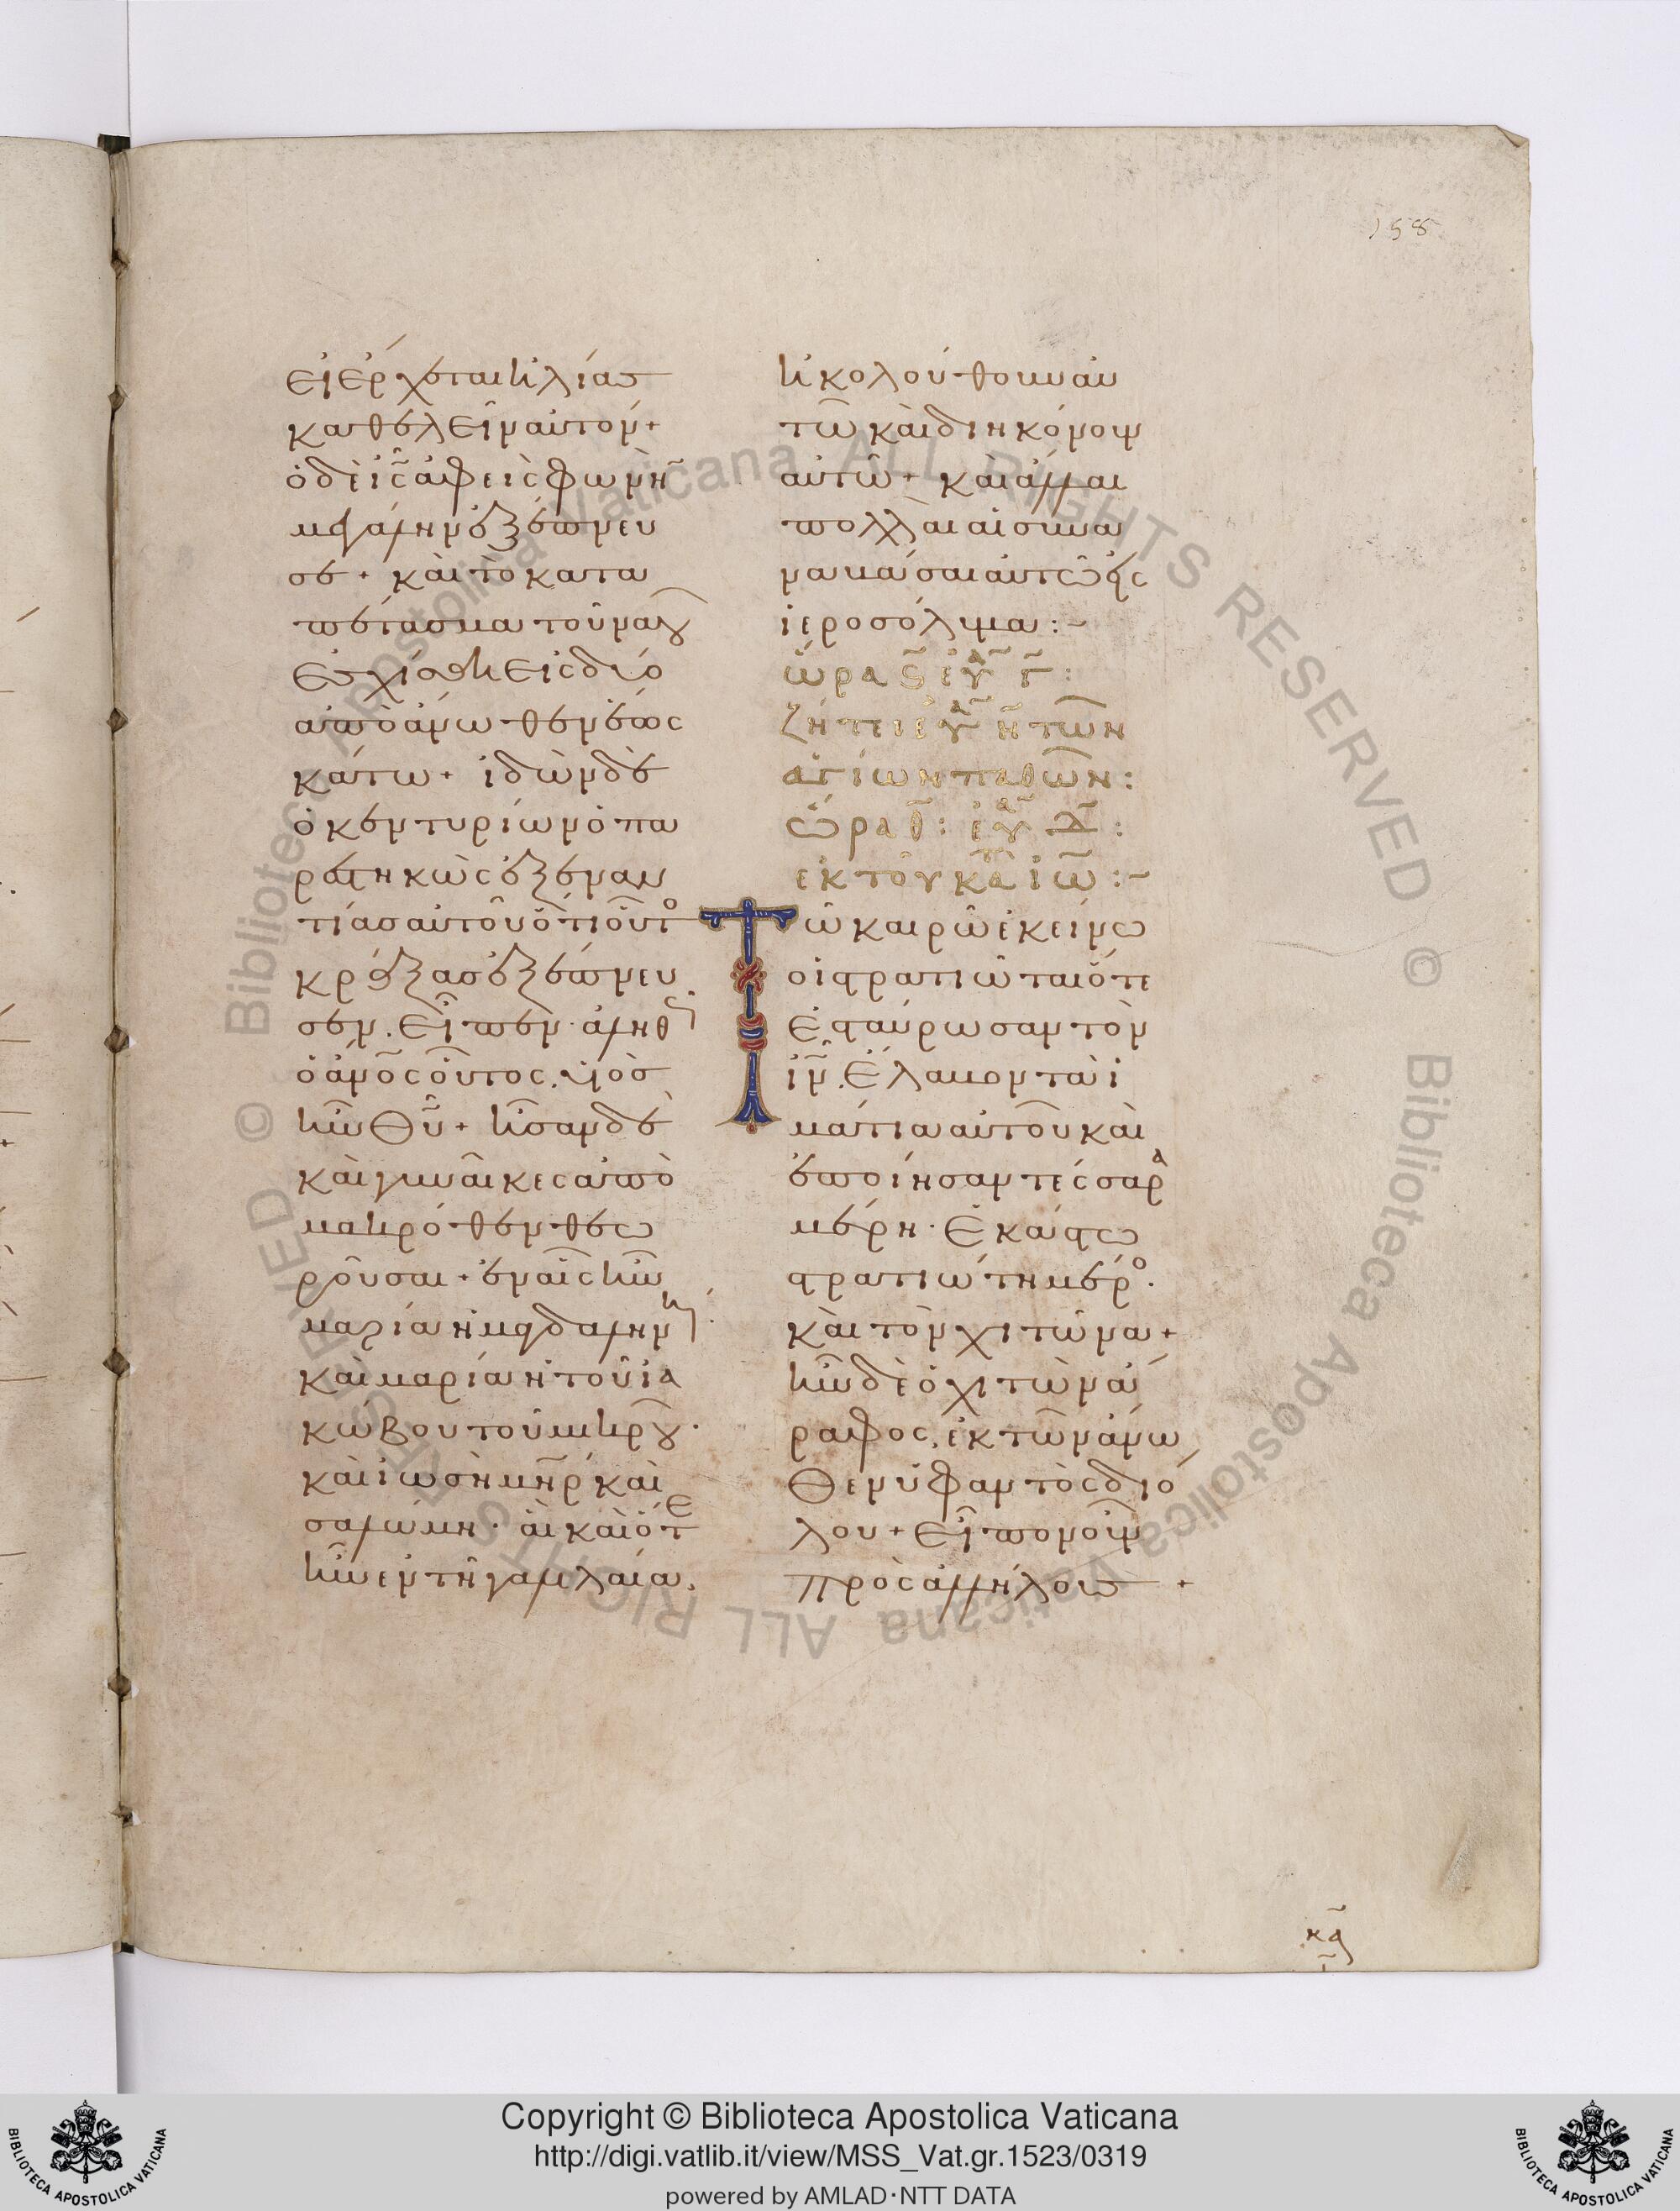 158
εἰ ἔρχεται ἡλίας
καθελεῖν αὐτόν +
ὁ δὲ ἰς̃ ἀφεὶς φωνὴ̃
μεγάλην ἐξέπνευ
σε + καὶ τὸ κατα
πέτασμα τοῦ ναοῦ
ἐσχίσθη εἰς δύο
ἀπὸ ἄνωθεν ἕως
κάτω + ἰδὼν δὲ
ὁ κεντυρίων ὁ πα
ρεστηκὼς ἐξ ἐναν
τίας αὐτοῦ ὅτι οὕτο
κράξας ἐξέπνευ
σεν. εἶπεν· ἀληθῶς
ὁ ἀν̅ο̅ς οὗτος. υἱὸς
ἦν θυ̃ + ἦσαν δὲ
καὶ γυναῖκες ἀπὸ
μακρόθεν θεω
ροῦσαι + ἐν αἷς ἦν
μαρία ἡ μαγδαληνὴ·
καὶ μαρία ἡ τοῦ ἰα
κώβου τοῦ μικροῦ·
καὶ ἰωσὴ μη̃ρ καὶ
σαλώμη· αἳ καὶ ὅτε
ἦν ἐν τῆ γαλιλαία.
ἠκολούθουν αὐ
τῶ καὶ διηκόνουν
αὐτῶ + καὶ ἄλλαι
πολλαὶ αἱ συνα
ναβᾶσαι αὐτῶ εἰς
ἱεροσόλυμα :~
ὥρα ς̅ εὐα̃γ γ̅ :
ζήτει εὐα̃γ η̃ τῶν
ἁγίων παθῶν :
ὥρα θ̅ : εὐα̃γ δ̅ :
ἐκ τοῦ κατὰ ἰω̅ :~
Τῶ καιρῶ ἐκείνω
οἱ στρατιῶται ὅτε
ἐσταύρωσαν τὸν
ἰν̃. ἔλαβον τὰ ἱ
μάτια αὐτοῦ καὶ
ἐποίησαν τέσσαρα
μέρη· ἑκάστω
στρατιώτη μέρο.
καὶ τὸν χιτῶνα +
ἦν δὲ ὁ χιτὼν ἄ
ραφος, ἐκ τῶν ἄνω
θεν ὑφαντὸς δι ὅ
λου + εἶπον οὖν
πρὸς ἀλλήλους +
Copyright © Biblioteca Apostolica Vaticana
http://digi.vatlib.it/view/MSS_Vat.gr.1523/0319
powered by AMLAD·NTT DATA
BIBLIOTECA APOSTOLICA VATICANA
BIBLIOTECA APOSTOLICA VATICANA
© Biblioteca Apostolica Vaticana ALL RIGHTS RESERVED © Biblioteca Apostolica Vaticana ALL RIGHTS RESERVED